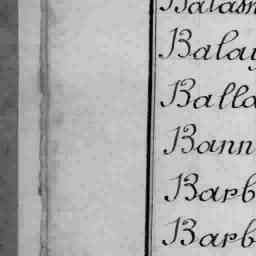 Balasn
Balay
Balla
Bann
Barb
Barb